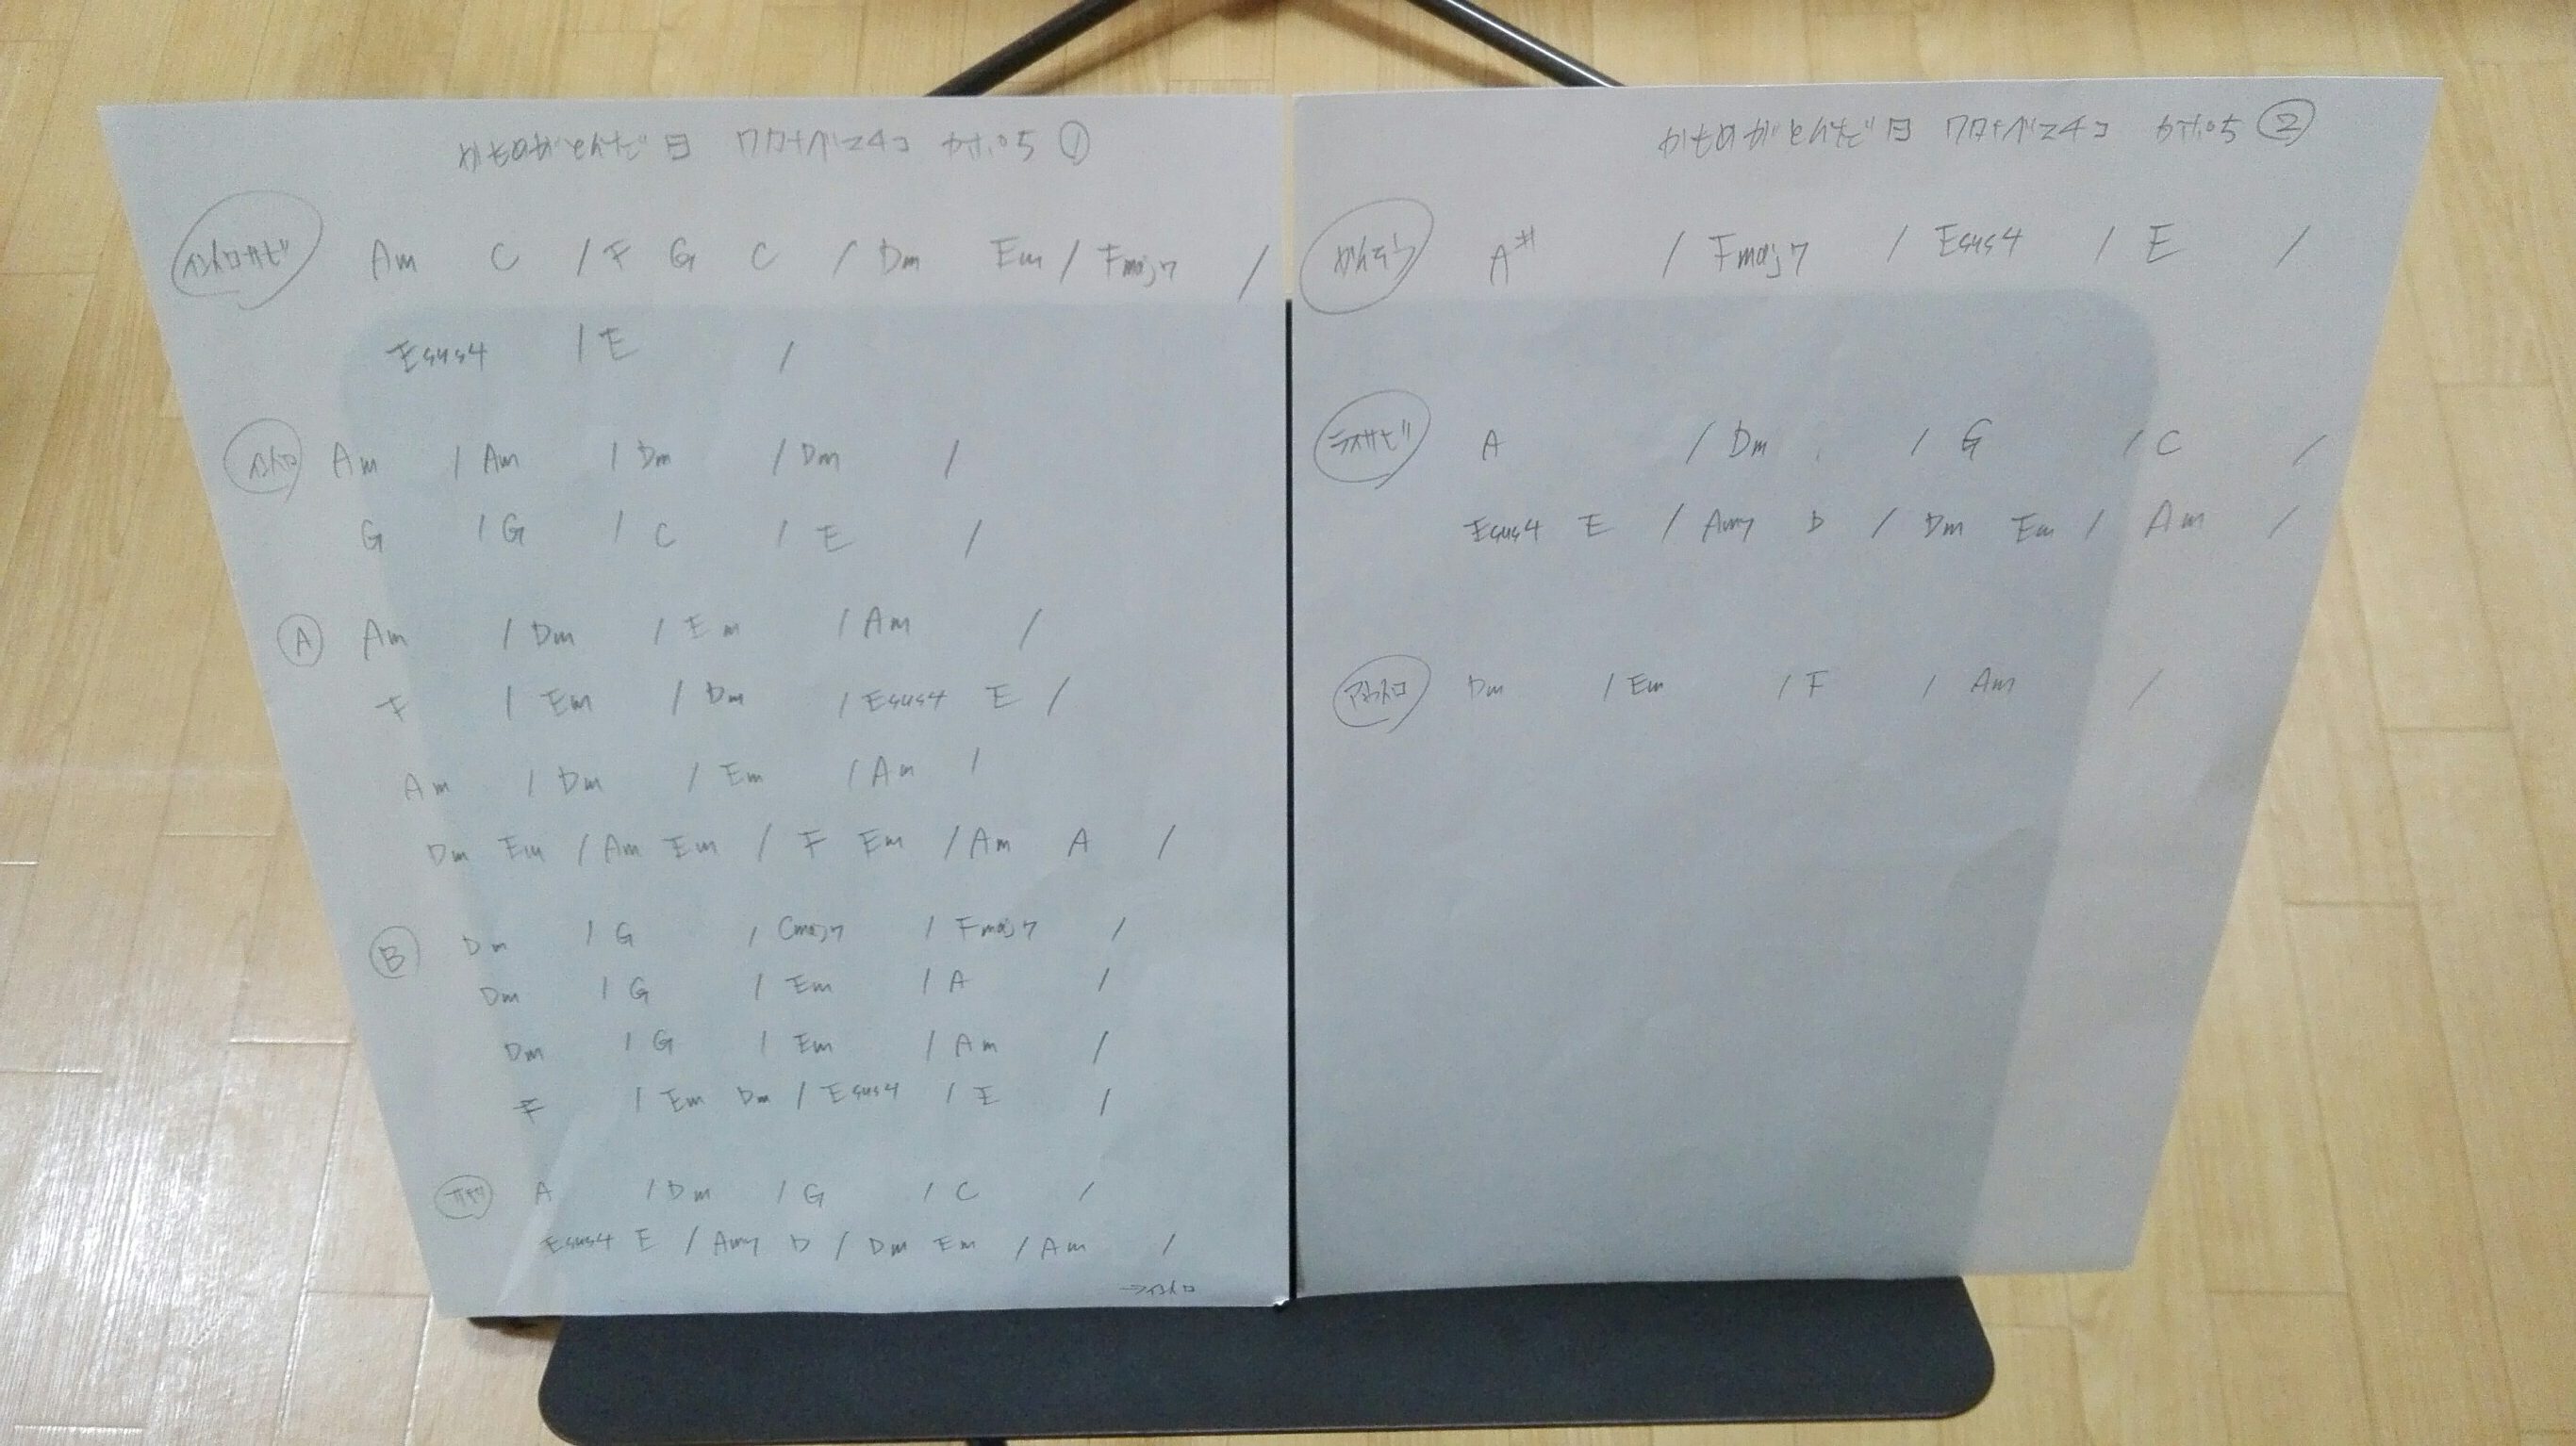 かもめがとんだ日 ワタナベマチコ カポ5 ①
イントロサビ Am C / F G C / Dm Em / Fmaj7 /
Esus4 / E /
イントロ Am / Am / Dm / Dm /
G / G / C / E /
A Am / Dm / Em / Am /
F / Em / Dm / Esus4 E /
Am / Dm / Em / Am /
Dm Em / Am Em / F Em / Am A /
B Dm / G / Cmaj7 / Fmaj7 /
Dm / G / Em / A /
Dm / G / Em / Am /
F / Em Dm / Esus4 / E /
サビ A / Dm / G / C /
Esus4 E / Am7 D / Dm Em / Am /
→イントロ
かもめがとんだ日 ワタナベマチコ カポ5 ②
かんそう A# / Fmaj7 / Esus4 / E /
ラスサビ A / Dm / G / C /
Esus4 E / Am7 D / Dm Em / Am /
アウトロ Dm / Em / F / Am /